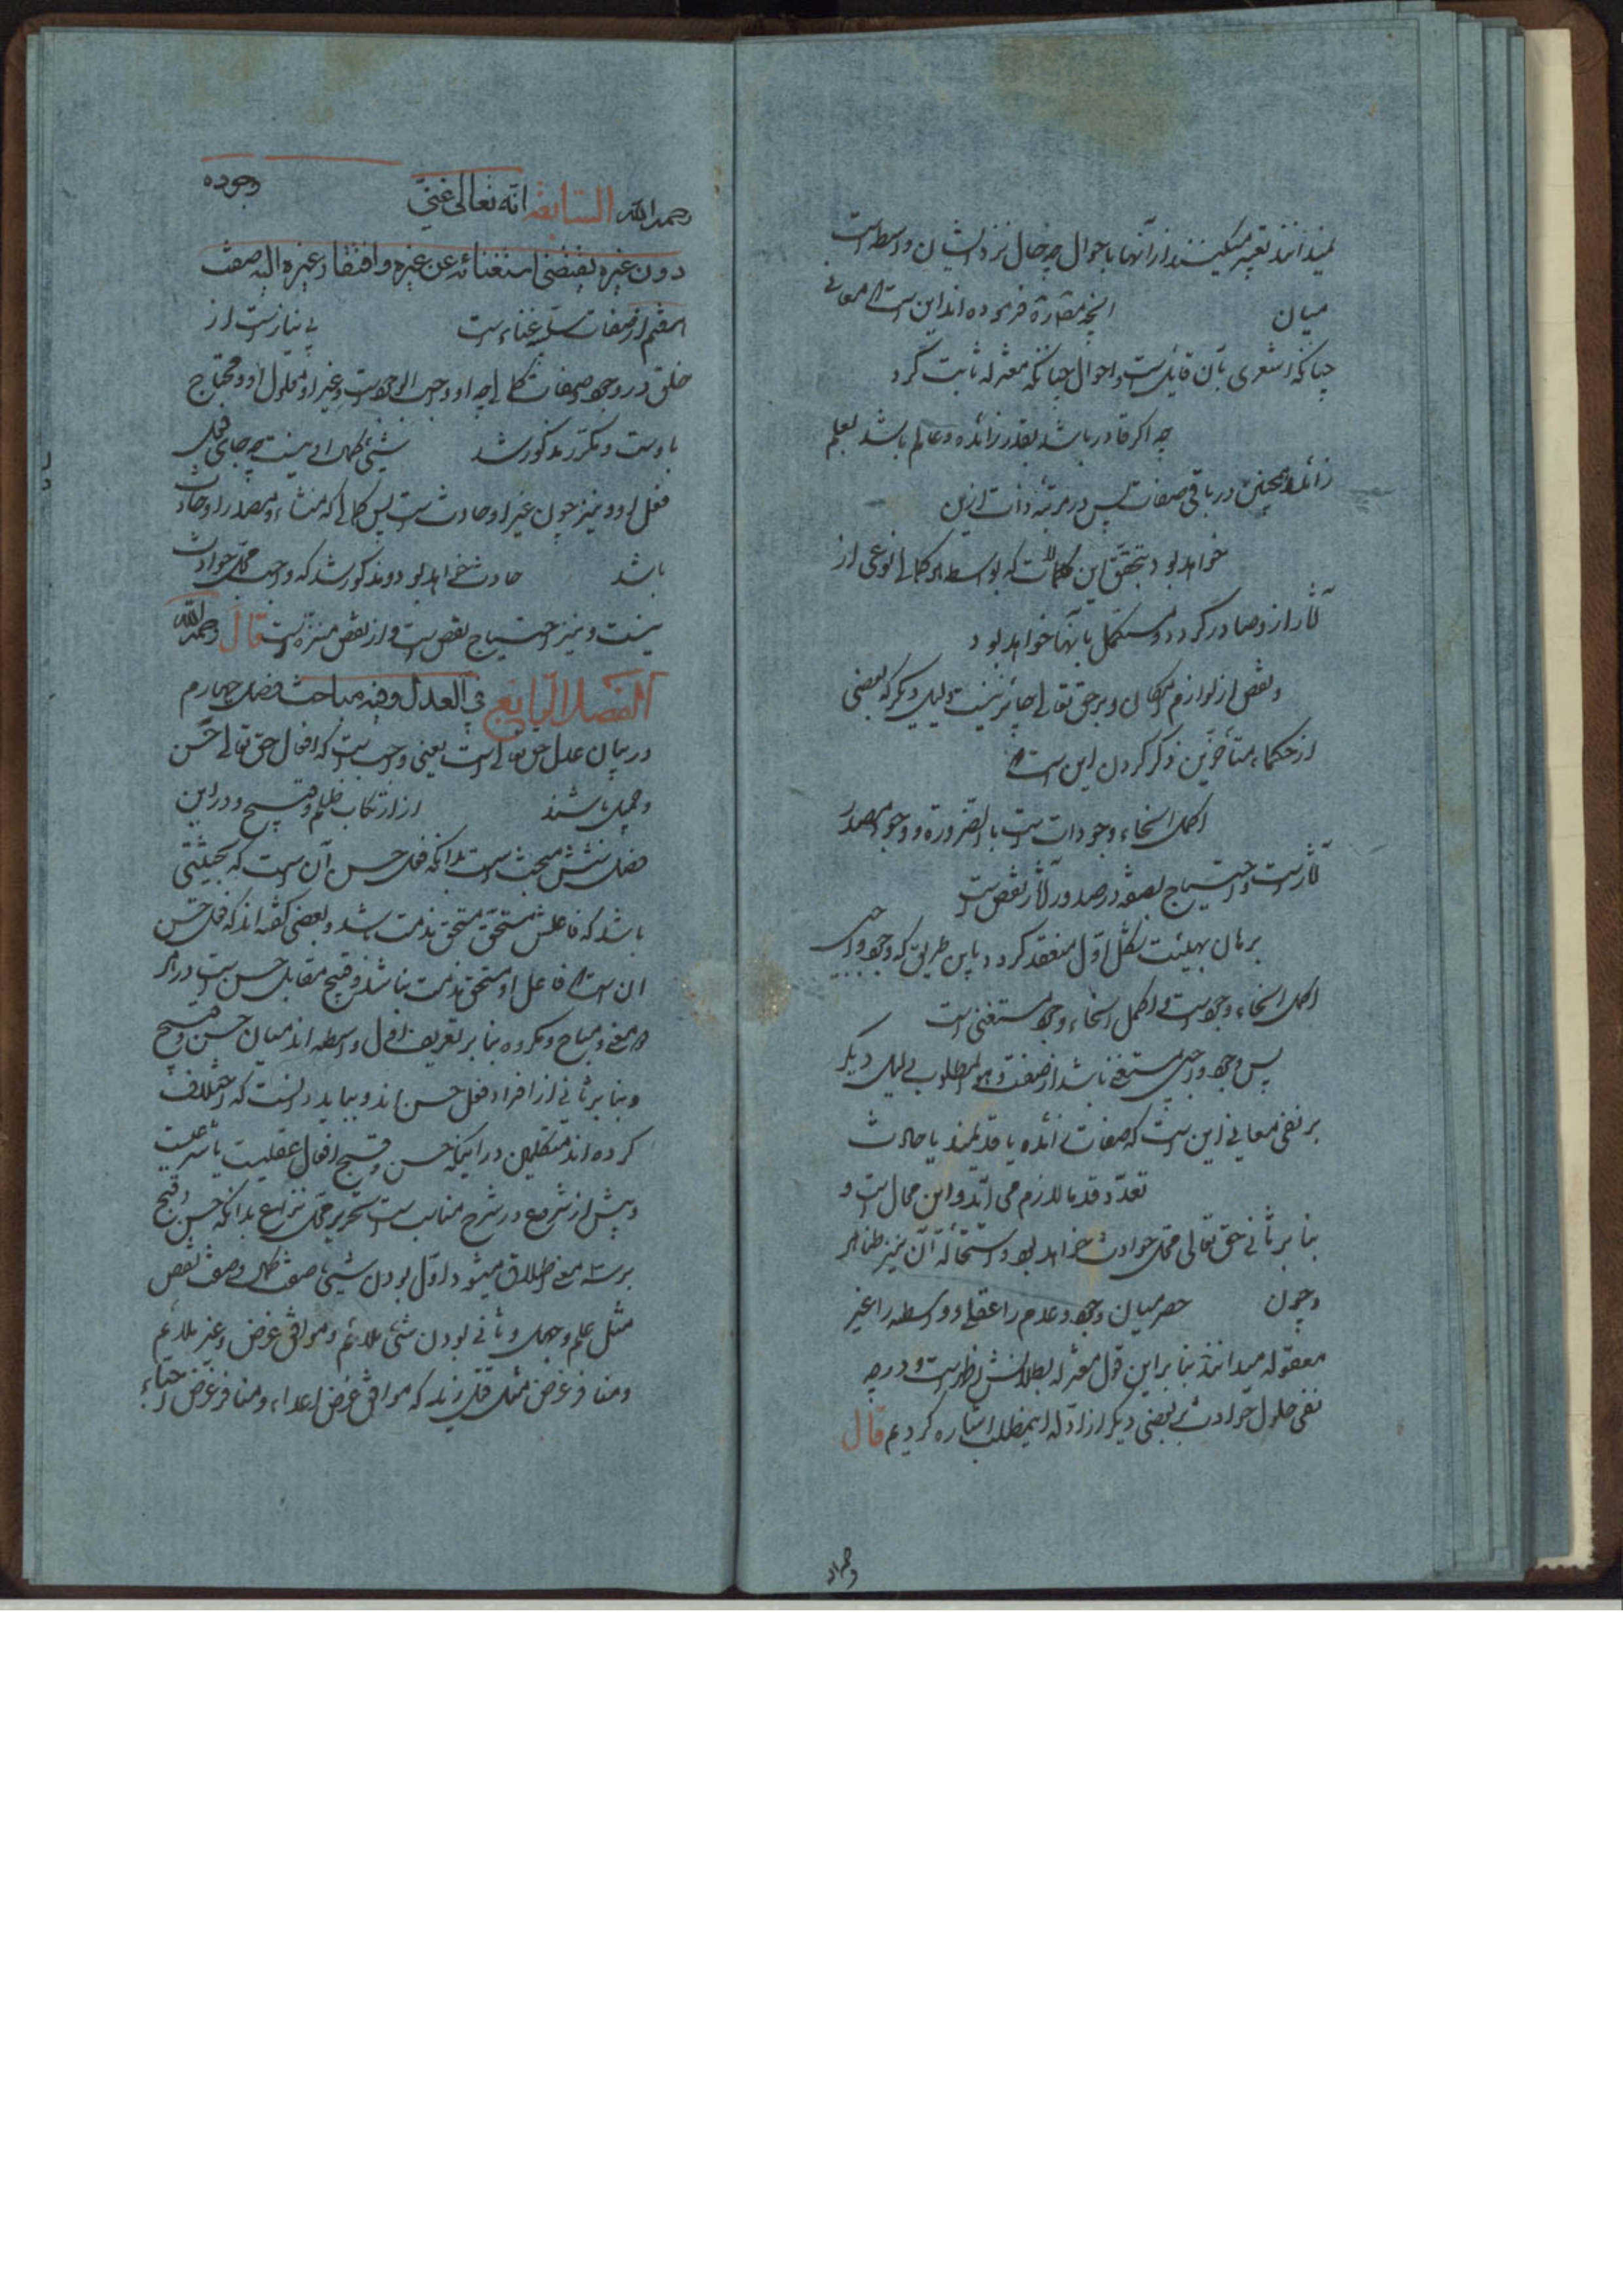 نمیدانند تعبیر میکنند از آنها باحوال چه حال نزد ایشان واسطه است
میان انچه مصادره فرموده اند این است که معانی
چنانکه اشعری بآن قایل است و احوال چنانکه معتزله ثابت کرد
چه اگر قادر باشد بقدرة زائده و عالم باشد بعلم
زائد و همچنین در باقی صفات پس در مرتبه ذات ازین
خواهد بود بتحقق این کمالات که بواسطه هر کمالی نوعی از
آثار ازو صادر گردد و مستکمل بآنها خواهد بود
و نقص از لوازم امکان و بر حق تعالی جائز نیست دلیل دیگر که بعضی
از حکماء متأخرین ذکر کردن این است که
اکمل انحاء وجودات است بالضرورة و وجود مصدر
آثار است و احتیاج بصفه در صدور آثار نقص است
برهان بهیئت شکل اول منعقد گردد باین طریق که وجود واجبی
اکمل انحاء وجود است و اکمل انحاء وجود مستغنی است
پس وجود واجبی مستغنی باشد از صفت وهو المطلوب دلیل دیگر
بر نفی معانی این است که صفات زائده یا قدیمند یا حادث
تعدد قدما لازم می آید و این محال است و
بنا بر ثانی حق تعالی محل حوادث خواهد بود و استحالة آن نیز ظاهر
و چون حصر میان وجود و عدم را عقلی و واسطه را غیر
معقوله میدانند بنا براین قول معتزله بطلانش ظاهر است و در
نفی حلول حوادث بر بعضی دیگر از ادله اینمطلب اشاره کردیم قال
رحمه الله السابعة انه تعالی غنی وجوده
دون غیره یقتضی استغنائه عن غیره و افتقار غیره الیه صفت
هفتم از صفات سلبیه غناء است بی نیاز است از
خلق در وجود و صفات کمالیه چه او واجب الوجود است و غیر او معلول او و محتاج
باوست و مکرر مذکور شد شیئ نیست چه جای
فعل او و نیز چون غیر او حادث است پس کمالی که منشاء و مصدر او حادث
باشد حادث خواهد بود و مذکور شد که واجب محل حوادث
نیست و نیز احتیاج نقص است و از نقص منزه است قال رحمه الله
الفصل الرابع فی العدل و فیه مباحث فصل چهارم
در بیان عدل حق تعالی است یعنی واجب است که افعال حق تعالی حسن
و جمیل باشند از ارتکاب ظلم و قبیح و در این
فصل شش مبحث است بدانکه فعل حسن آن است که بحیثیتی
باشد که فاعلش مستحق مذمت باشد و بعضی گفته اند که فعل حسن
ان است که فاعل او مستحق مذمت نباشد و قبیح مقابل حسن است در هر
دو معنی و مباح و مکروه بنا بر تعریف اول واسطه اند میان حسن و قبیح
و بنا بر ثانی از افراد فعل حسن اند و بباید دانست که اختلاف
کرده اند متکلمین در اینکه حسن و قبح افعال عقلیست یا شرعیست
و پیش از شروع در شرح مناسب است تحریر محل نزاع بدانکه حسن و قبح
بر سه معنی اطلاق میشود اول بودن شیئ صفت کمال و صفت نقص
مثل علم و جهل و ثانی بودن شئ ملائم و موافق غرض و غیر ملائم
و منافر غرض مثل قتل زید که موافق غرض اعداء و منافر غرض احباء